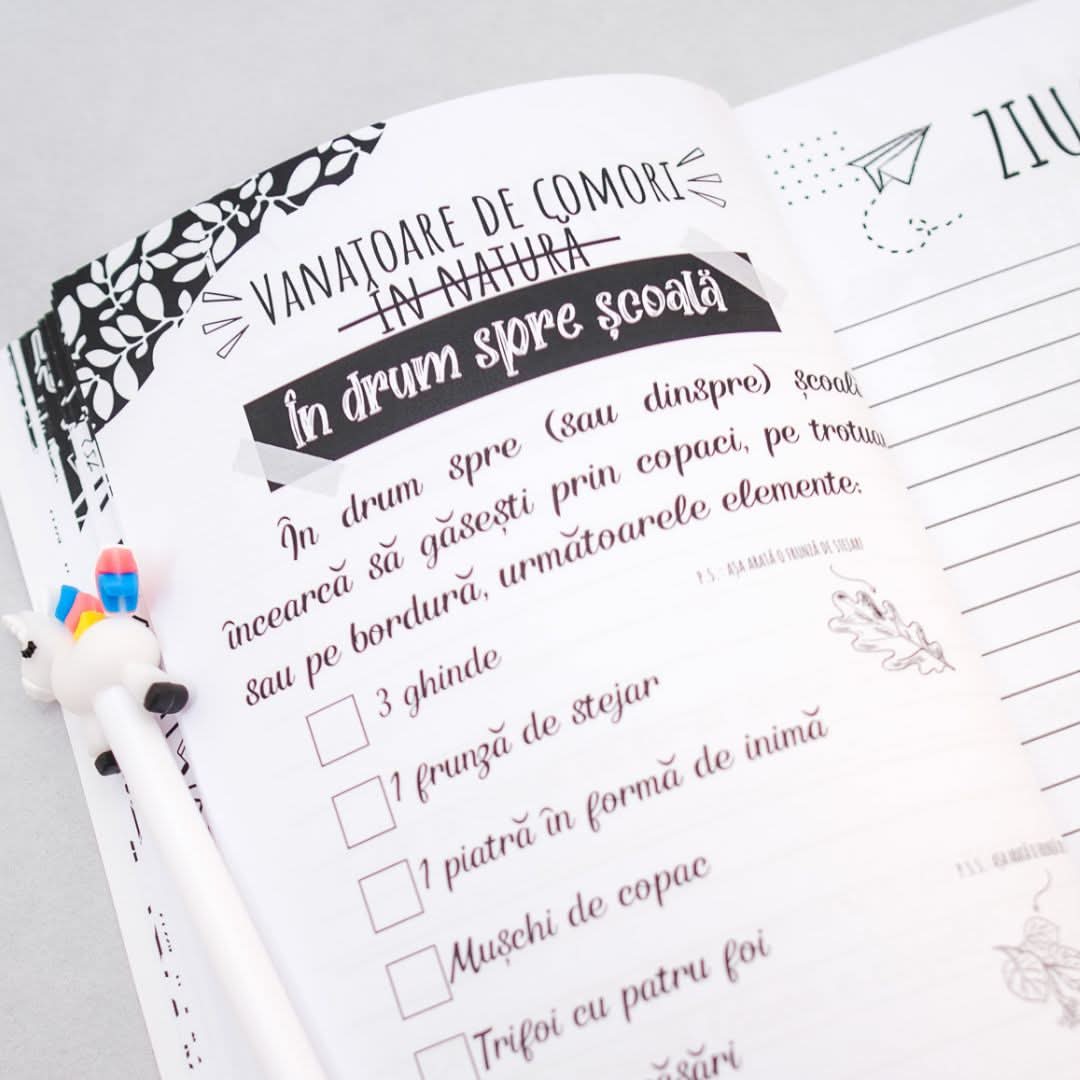 VANATOARE DE COMORI
ÎN NATURĂ
În drum spre școală
În drum spre (sau dinspre) școal
încearcă să găsești prin copaci, pe trotua
sau pe bordură, următoarele elemente:
P.S.: AȘA ARATĂ O FRUNZĂ DE STEJAR!
3 ghinde
1 frunză de stejar
1 piatră în formă de inimă
Mușchi de copac
P.S.S.: AȘA ARATĂ O
Trifoi cu patru foi
ăsări
ZIU